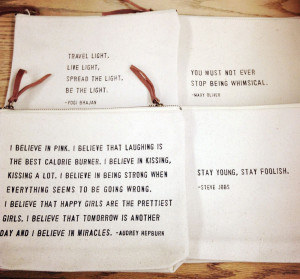 TRAVEL LIGHT.
LIVE LIGHT,
SPREAD THE LIGHT,
BE THE LIGHT.
-YOGI BHAJAN
YOU MUST NOT EVER
STOP BEING WHIMSICAL.
-MARY OLIVER
I BELIEVE IN PINK. I BELIEVE THAT LAUGHING IS
THE BEST CALORIE BURNER. I BELIEVE IN KISSING,
KISSING A LOT. I BELIEVE IN BEING STRONG WHEN
EVERYTHING SEEMS TO BE GOING WRONG.
I BELIEVE THAT HAPPY GIRLS ARE THE PRETTIEST
GIRLS. I BELIEVE THAT TOMORROW IS ANOTHER
DAY AND I BELIEVE IN MIRACLES. -AUDREY HEPBURN
STAY YOUNG, STAY FOOLISH.
-STEVE JOBS